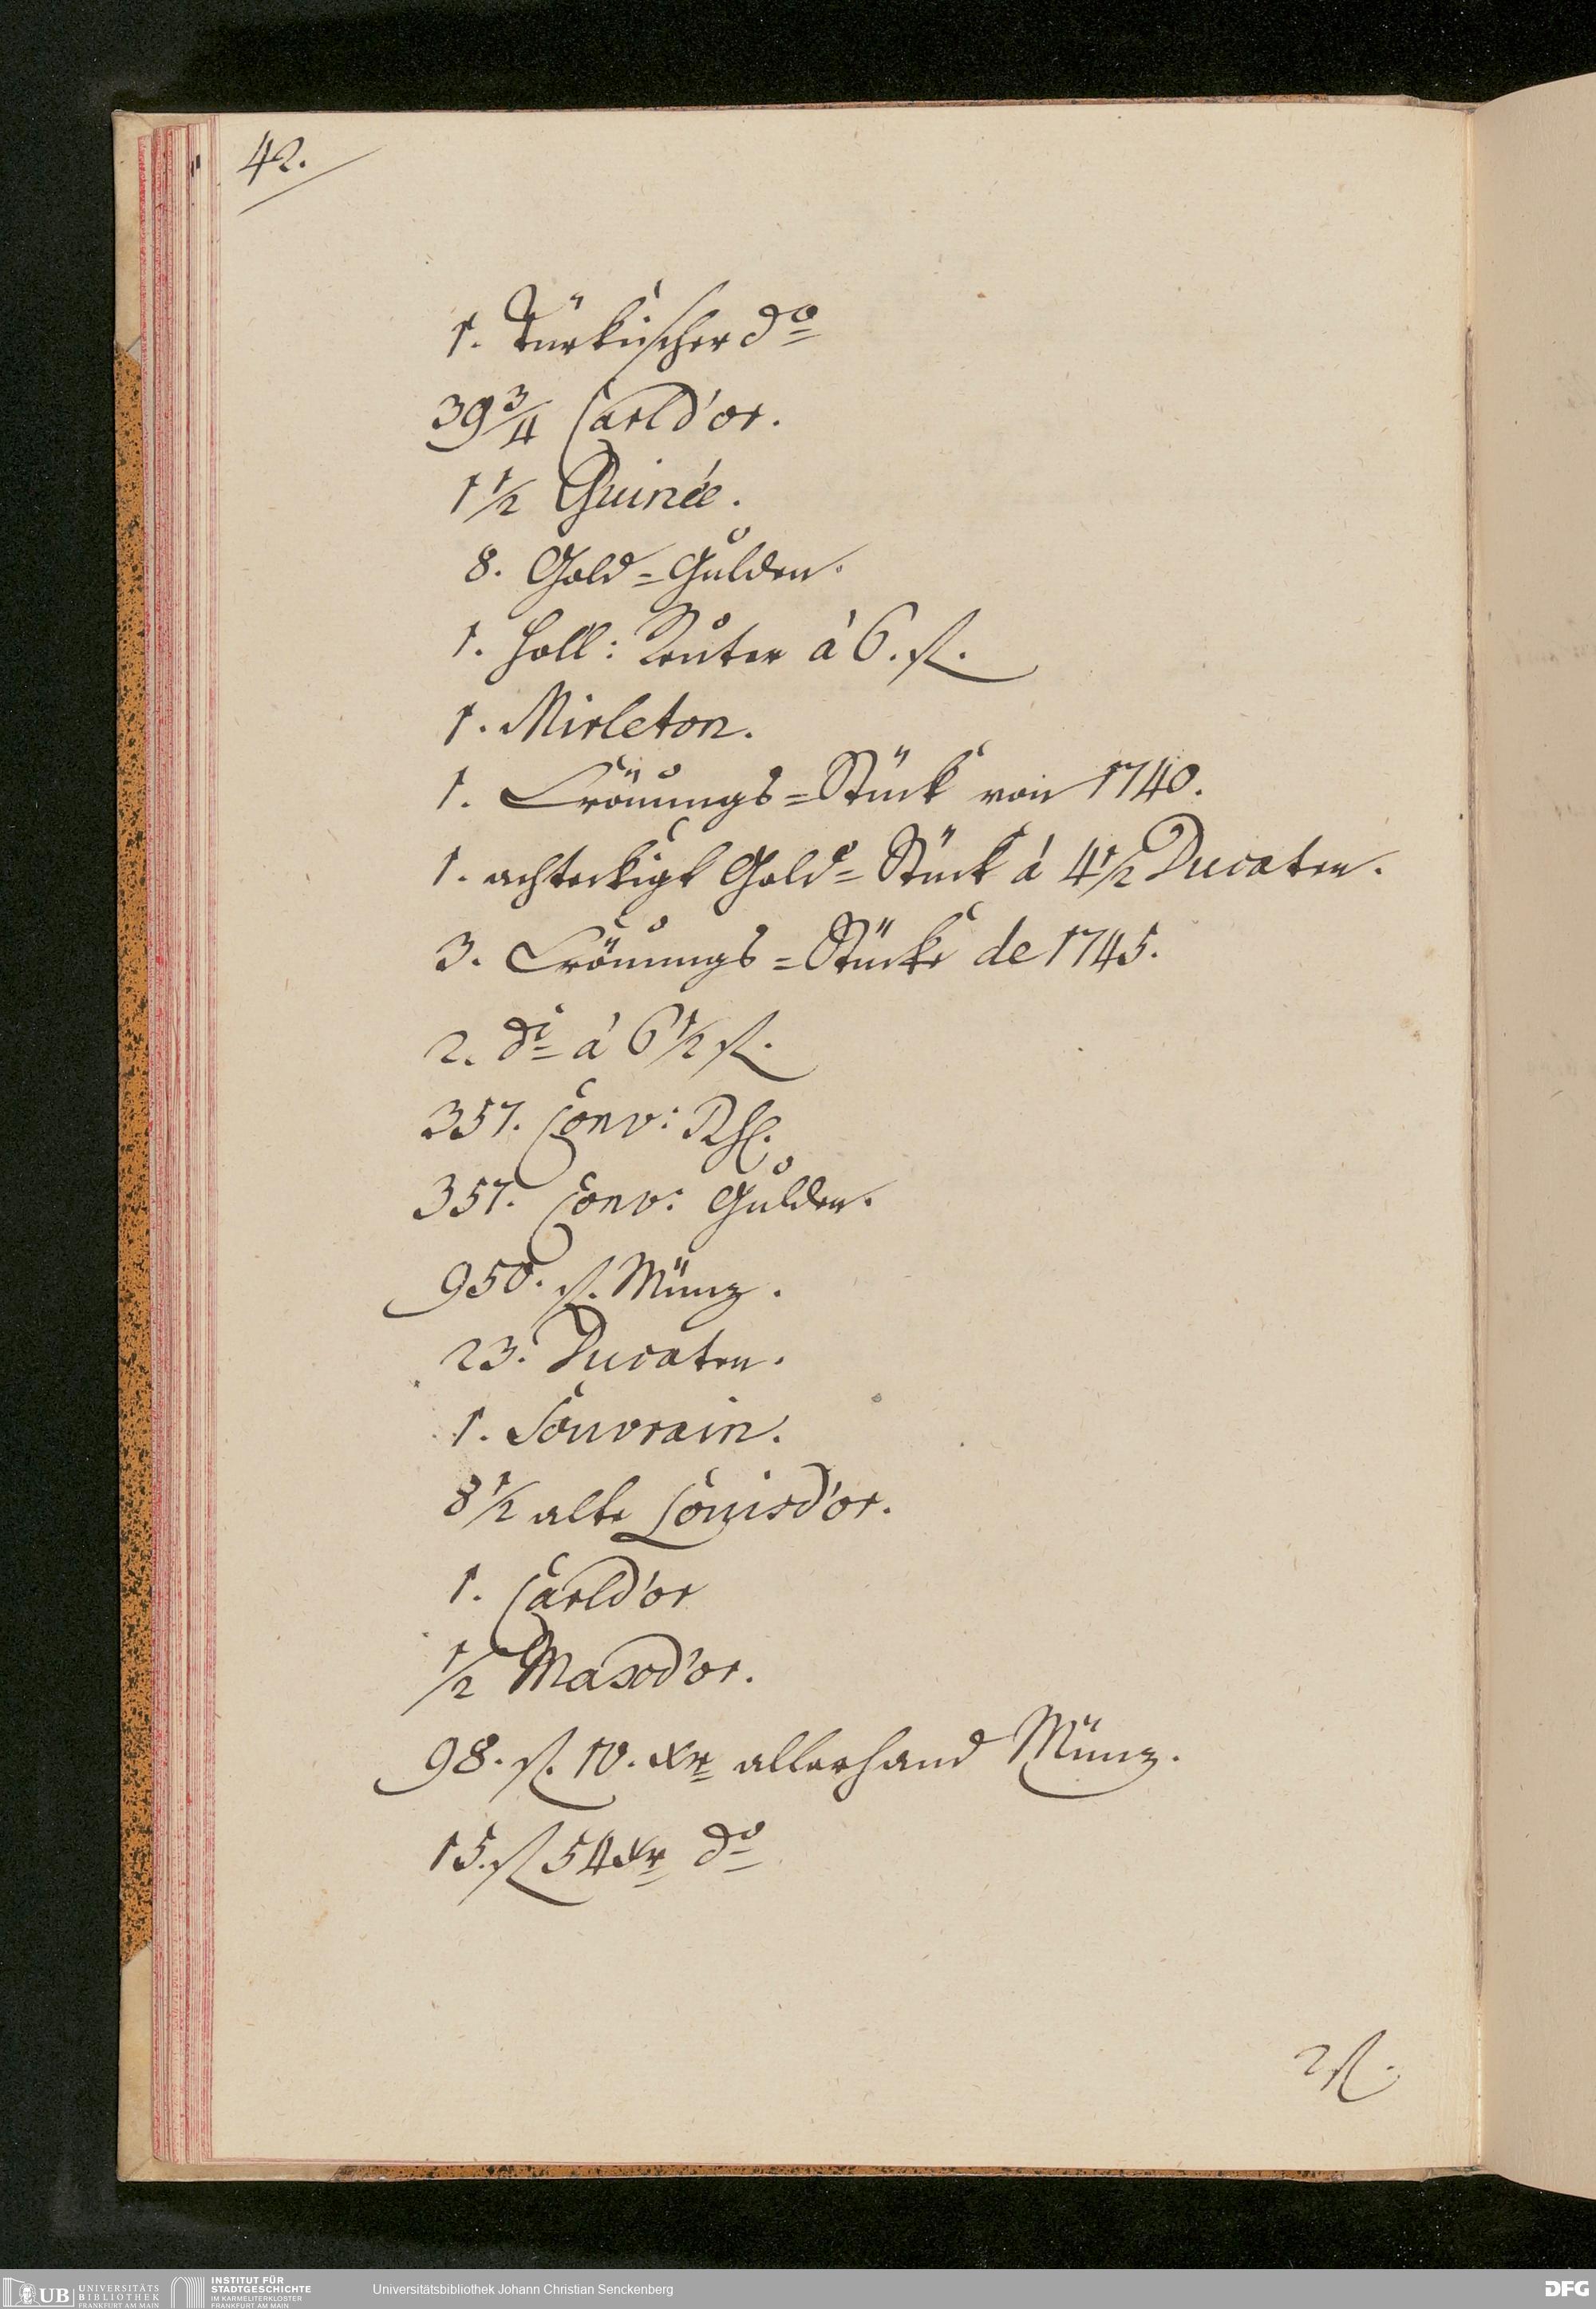 42.
1. Türkischer do
39 3/4 Carld'or.
1 1/2 Guinée.
8. Gold=Gulden.
1. Holl: Reuter à 6. fl.
1. Mirleton.
1. Crönungs=Stück von 1740.
1. achteckigt Gold=Stück à 4 1/2 Ducaten.
3. Crönungs=Stücke de 1745.
2. di à 6 1/2 fl.
357. Conv: Rthl.
357. Conv: Gulden.
950. fl. Müntz.
23. Ducaten.
1. Souvrain.
8 1/2 alte Louisd'or.
1. Carld'or
1/2 Maxd'or.
98. fl. 10. Xr allerhand Müntz.
15. fl 54 Xr do
2 fl.
UB UNIVERSITÄTS BIBLIOTHEK FRANKFURT AM MAIN
INSTITUT FÜR STADTGESCHICHTE IM KARMELITERKLOSTER FRANKFURT AM MAIN
Universitätsbibliothek Johann Christian Senckenberg
DFG